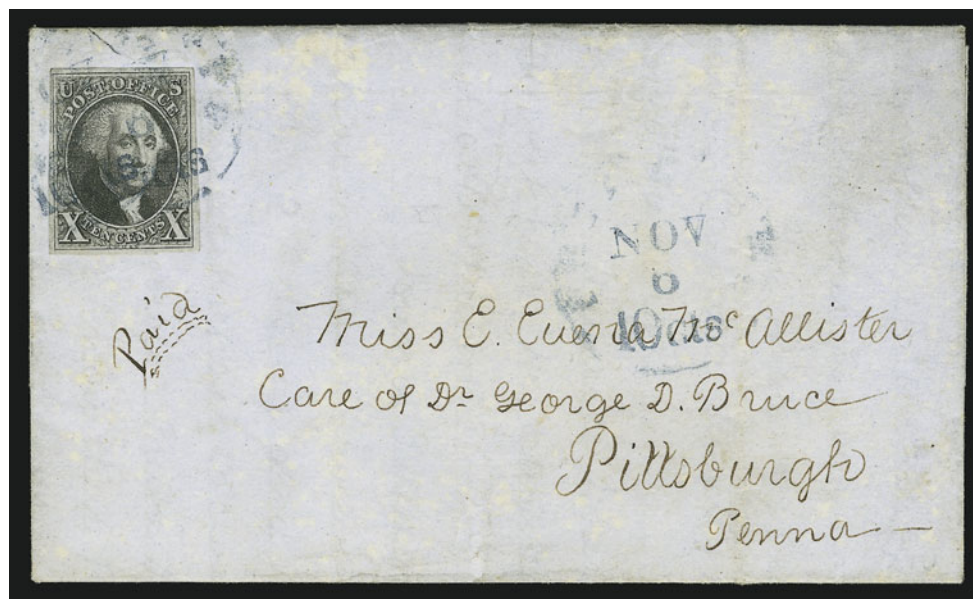 U S
POST OFFICE
X TEN CENTS X
NOV
6
10 cts
Paid
Miss E. Euena McAllister
Care of Dr George D. Bruce
Pittsburgh
Penna